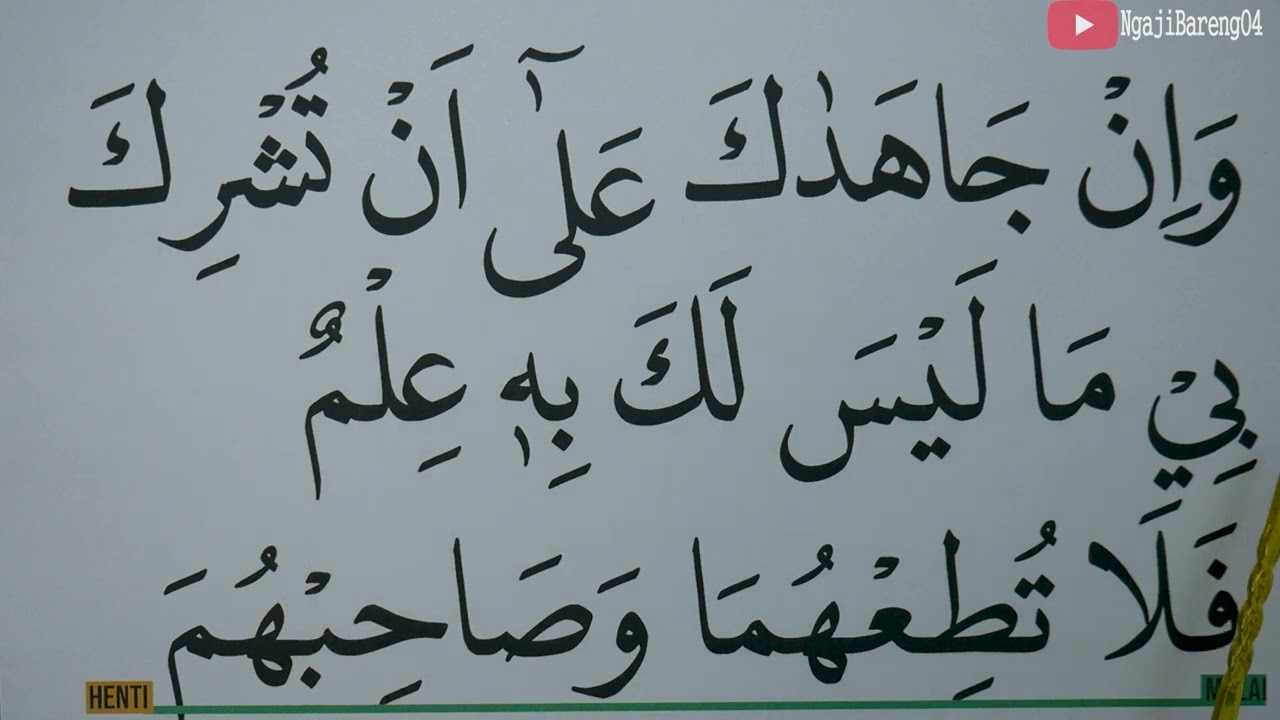 NgajiBareng04
وَاِنْ جَاهَدٰكَ عَلٰٓى اَنْ تُشْرِكَ
بِيْ مَا لَيْسَ لَكَ بِهٖ عِلْمٌ
فَلَا تُطِعْهُمَا وَصَاحِبْهُمَ
HENTI